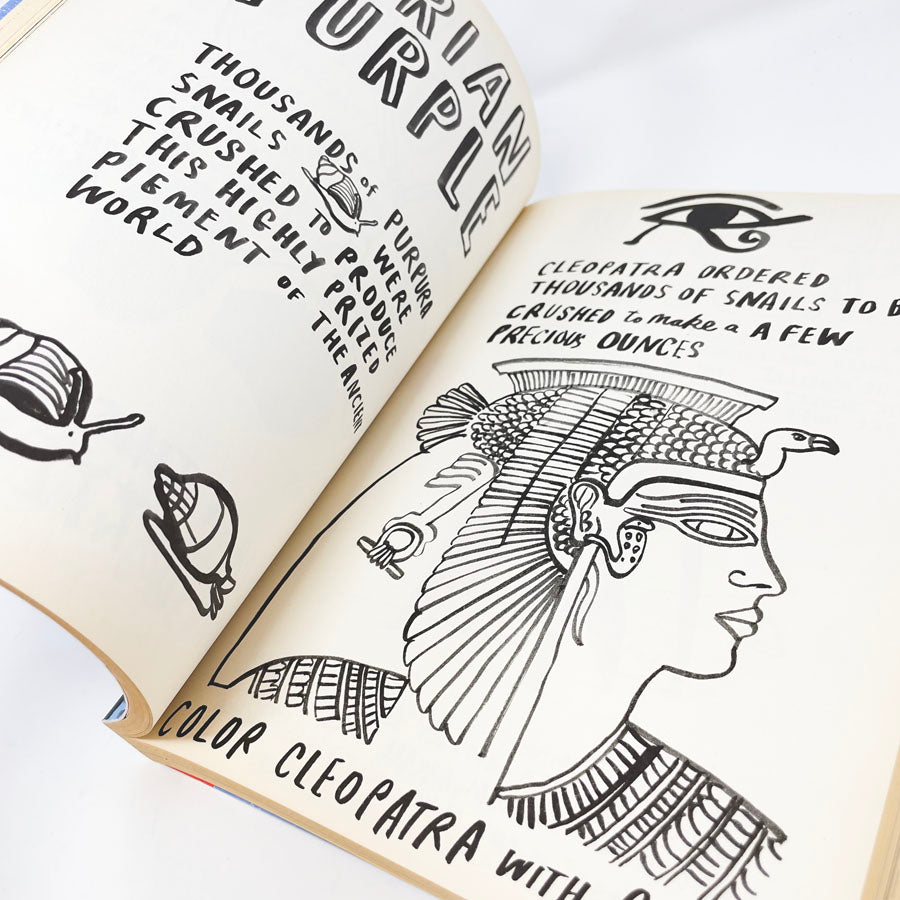 RIAN
URPLE
THOUSANDS of PURPURA
SNAILS WERE
CRUSHED TO PRODUCE
THIS HIGHLY PRIZED
PIGMENT OF THE ANCIENT
WORLD
CLEOPATRA ORDERED
THOUSANDS OF SNAILS TO B
CRUSHED to make a A FEW
PRECIOUS OUNCES
COLOR CLEOPATRA WITH